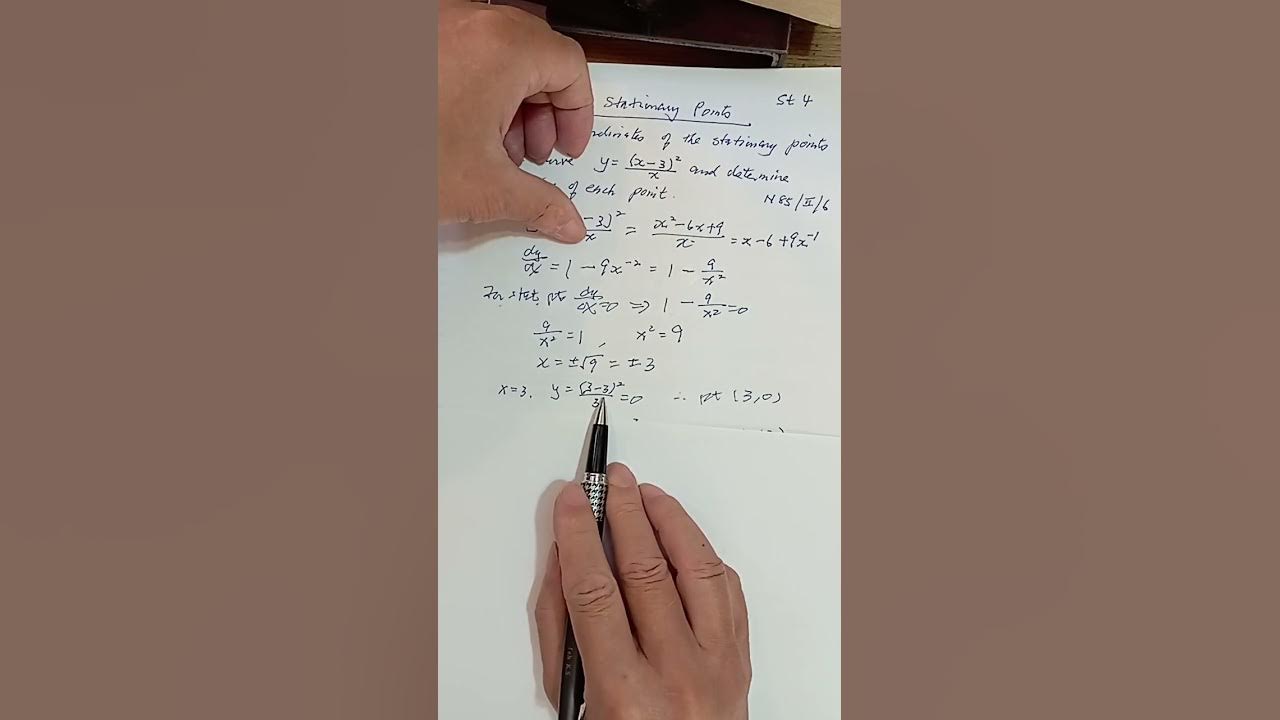 Stationary Points St 4
of the stationary points
y = (x-3)²/x and determine
of each point. N85/II/6
-3)²/x = x²-6x+9/x = x-6+9x⁻¹
dy/dx = 1 - 9x⁻² = 1 - 9/x²
For stat. pt. dy/dx = 0 ⇒ 1 - 9/x² = 0
9/x² = 1, x² = 9
x = ±√9 = ±3
x=3, y = (3-3)²/3 = 0 ∴ pt (3,0)
Teh K.S